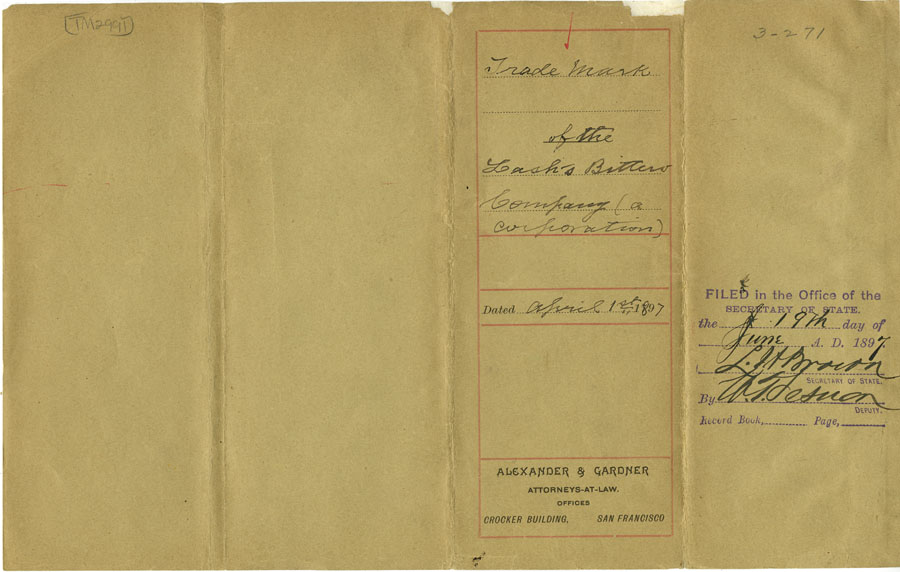 TM2991
Trade Mark
of the
Lash's Bitters
Company (a
corporation)
Dated April 1st 1897
ALEXANDER & GARDNER
ATTORNEYS-AT-LAW.
OFFICES
CROCKER BUILDING, SAN FRANCISCO
3-271
FILED in the Office of the
SECRETARY OF STATE.
the 19th day of
June A. D. 1897
L. H. Brown
SECRETARY OF STATE.
By
DEPUTY.
Record Book, Page,